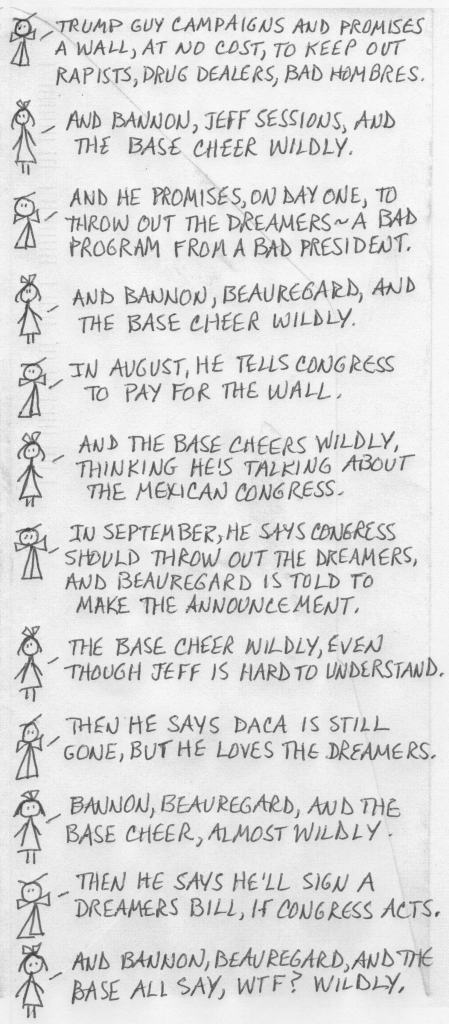 TRUMP GUY CAMPAIGNS AND PROMISES
A WALL, AT NO COST, TO KEEP OUT
RAPISTS, DRUG DEALERS, BAD HOMBRES.
AND BANNON, JEFF SESSIONS, AND
THE BASE CHEER WILDLY.
AND HE PROMISES, ON DAY ONE, TO
THROW OUT THE DREAMERS~A BAD
PROGRAM FROM A BAD PRESIDENT.
AND BANNON, BEAUREGARD, AND
THE BASE CHEER WILDLY.
IN AUGUST, HE TELLS CONGRESS
TO PAY FOR THE WALL.
AND THE BASE CHEERS WILDLY,
THINKING HE'S TALKING ABOUT
THE MEXICAN CONGRESS.
IN SEPTEMBER, HE SAYS CONGRESS
SHOULD THROW OUT THE DREAMERS,
AND BEAUREGARD IS TOLD TO
MAKE THE ANNOUNCEMENT.
THE BASE CHEER WILDLY, EVEN
THOUGH JEFF IS HARD TO UNDERSTAND.
THEN HE SAYS DACA IS STILL
GONE, BUT HE LOVES THE DREAMERS.
BANNON, BEAUREGARD, AND THE
BASE CHEER, ALMOST WILDLY.
THEN HE SAYS HE'LL SIGN A
DREAMERS BILL, IF CONGRESS ACTS.
AND BANNON, BEAUREGARD, AND THE
BASE ALL SAY, WTF? WILDLY.